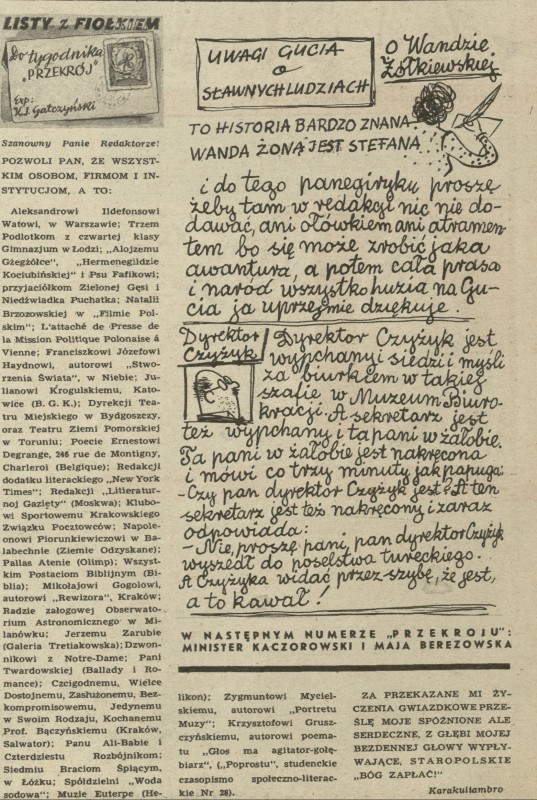 LISTY z FIOŁKIEM
Do tygodnika
"PRZEKRÓJ"
Exp:
K.I. Gałczyński
Szanowny Panie Redaktorze!
POZWOLI PAN, ŻE WSZYST-
KIM OSOBOM, FIRMOM I IN-
STYTUCJOM, A TO:
Aleksandrowi Ildefonsowi
Watowi, w Warszawie; Trzem
Podlotkom z czwartej klasy
Gimnazjum w Łodzi; „Alojzemu
Gżegżółce", „Hermenegildzie
Kociubińskiej" i Psu Fafikowi;
przyjaciółkom Zielonej Gęsi i
Niedźwiadka Puchatka; Natalii
Brzozowskiej w „Filmie Pol-
skim"; L'attaché de Presse de
la Mission Politique Polonaise à
Vienne; Franciszkowi Józefowi
Haydnowi, autorowi „Stwo-
rzenia Świata", w Niebie; Ju-
lianowi Krogulskiemu, Kato-
wice (B. G. K.); Dyrekcji Tea-
tru Miejskiego w Bydgoszczy,
oraz Teatru Ziemi Pomorskiej
w Toruniu; Poecie Ernestowi
Degrange, 246 rue de Montigny,
Charleroi (Belgique); Redakcji
dodatku literackiego „New York
Times"; Redakcji „Litieratur-
noj Gaziety" (Moskwa); Klubo-
wi Sportowemu Krakowskiego
Związku Pocztowców; Napole-
onowi Piorunkiewiczowi w Ba-
łabechnie (Ziemie Odzyskane);
Pallas Atenie (Olimp); Wszyst-
kim Postaciom Biblijnym (Bi-
blia); Mikołajowi Gogolowi,
autorowi „Rewizora", Kraków;
Radzie załogowej Obserwato-
rium Astronomicznego w Mi-
lanówku; Jerzemu Zarubie
(Galeria Tretiakowska); Dzwon-
nikowi z Notre-Dame; Pani
Twardowskiej (Ballady i Ro-
mance); Czcigodnemu, Wielce
Dostojnemu, Zasłużonemu, Bez-
kompromisowemu, Jedynemu
w Swoim Rodzaju, Kochanemu
Prof. Bączyńskiemu (Kraków,
Salwator); Panu Ali-Babie i
Czterdziestu Rozbójnikom;
Siedmiu Braciom Śpiącym,
w Łóżku; Spółdzielni „Woda
sodowa"; Muzie Euterpe (He-
likon); Zygmuntowi Myciel-
skiemu, autorowi „Portretu
Muzy"; Krzysztofowi Grusz-
czyńskiemu, autorowi poema-
tu „Głos ma agitator-gołę-
biarz", („Poprostu", studenckie
czasopismo społeczno-literac-
kie Nr 28).
ZA PRZEKAZANE MI ŻY-
CZENIA GWIAZDKOWE PRZE-
ŚLĘ MOJE SPÓŹNIONE ALE
SERDECZNE, Z GŁĘBI MOJEJ
BEZDENNEJ GŁOWY WYPŁY-
WAJĄCE, STAROPOLSKIE
„BÓG ZAPŁAĆ!"
Karakuliambro
UWAGI GUCIA
o
SŁAWNYCH LUDZIACH
o Wandzie
Żółkiewskiej
TO HISTORIA BARDZO ZNANA
WANDA ŻONĄ JEST STEFANA
i do tego panegiryku proszę
żeby tam w redakcji nic nie do-
dawać, ani ołówkiem ani atramen-
tem bo się może zrobić jaka
awantura, a potem cała prasa
i naród wszystko huzia na Gu-
cia ja uprzejmie dziękuję.
Dyrektor
Czyżyk
Dyrektor Czyżyk jest
wypchany i siedzi i myśli
za biurkiem w takiej
szafie w Muzeum Biuro-
kracji. A sekretarz jest
też wypchany i ta pani w żałobie.
Ta pani w żałobie jest nakręcona
i mówi co trzy minuty jak papuga:
- Czy pan dyrektor Czyżyk jest? A ten
sekretarz jest też nakręcony i zaraz
odpowiada:
- Nie, proszę pani, pan dyrektor Czyżyk
wyszedł do poselstwa tureckiego.
A Czyżyka widać przez szybę, że jest,
a to kawał!
W NASTĘPNYM NUMERZE „PRZEKROJU":
MINISTER KACZOROWSKI I MAJA BEREZOWSKA